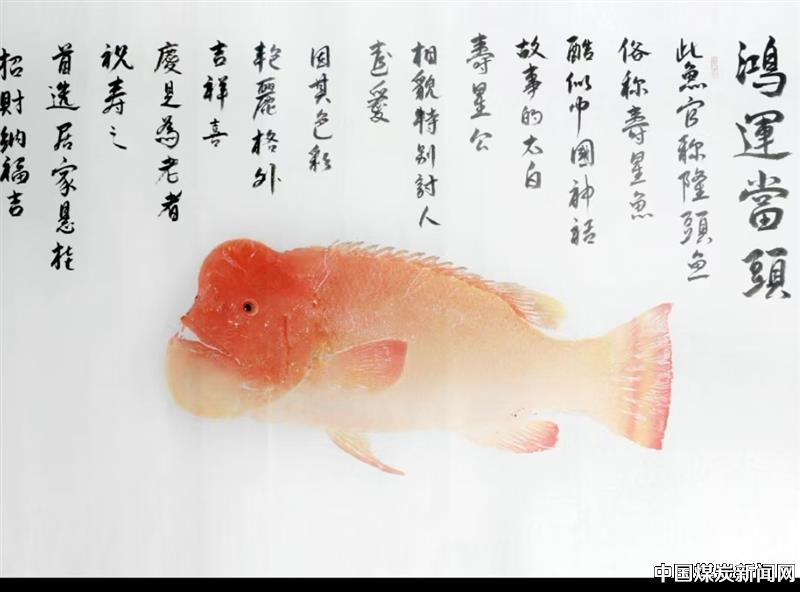 鴻運當頭
此魚官称隆頭魚
俗称壽星魚
酷似中國神話
故事的太白
壽星公
相貌特别討人
喜爱
因其色彩
艳麗格外
吉祥喜
慶是為老者
祝壽之
首选居家悬挂
招財納福吉
中国煤炭新闻网